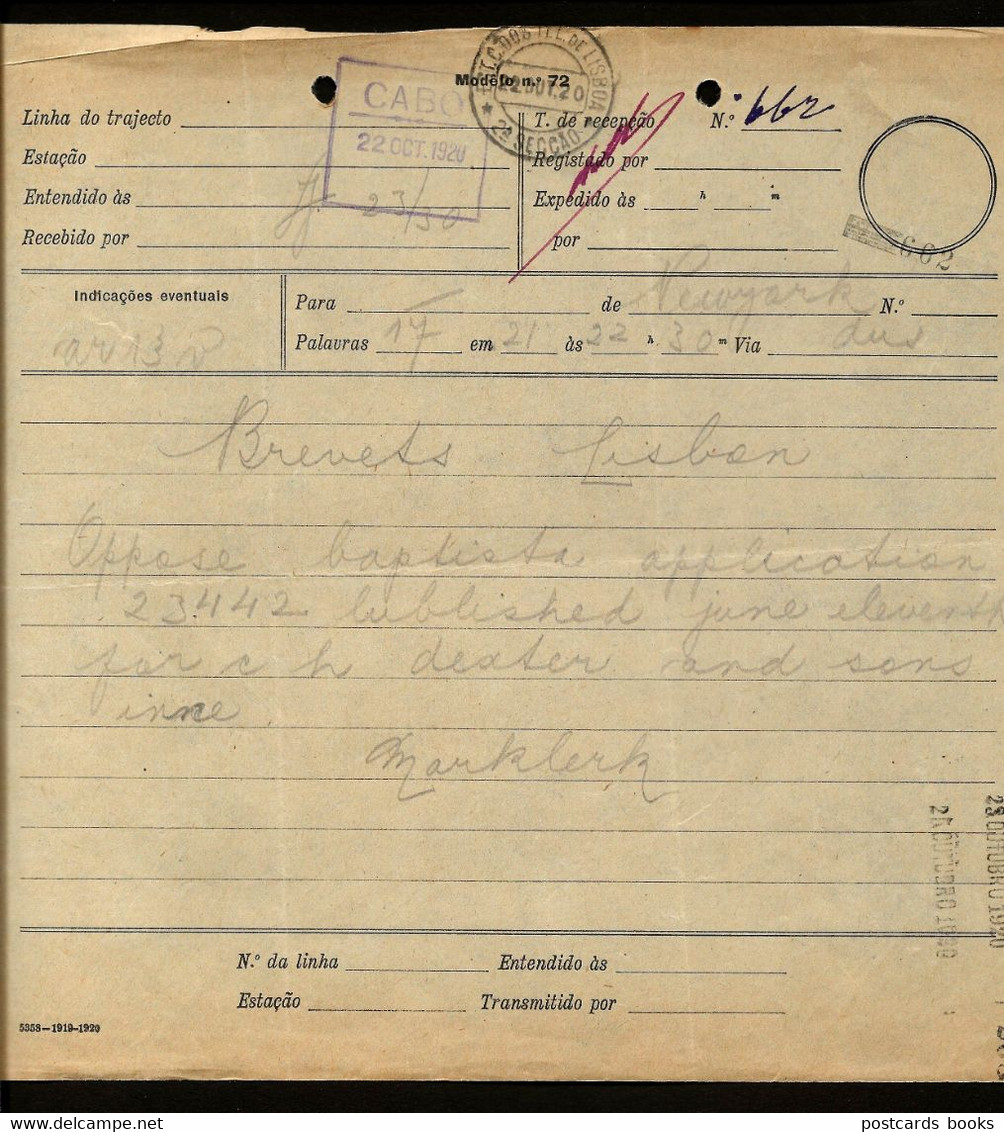 Modelo n.º 72
EST. C. DOS TEL. DE LISBOA
22 OUT. 20
2ª SECÇÃO
CABO
22 OCT. 1920
Linha do trajecto
Estação
Entendido às
23/30
Recebido por
T. de recepção N.º 662
Registado por
Expedido às h m
por
662
Indicações eventuais
Para de Newyork N.º
Palavras 17 em 21 às 22 h 30 m Via
Brevets Lisbon
Oppose baptista application
23442 lublished june eleventh
for c h dexter and sons
Marklerk
23 OUTUBRO 1920
OUTUBRO 1920
N.º da linha Entendido às
Estação Transmitido por
5358—1919-1920
postcards books